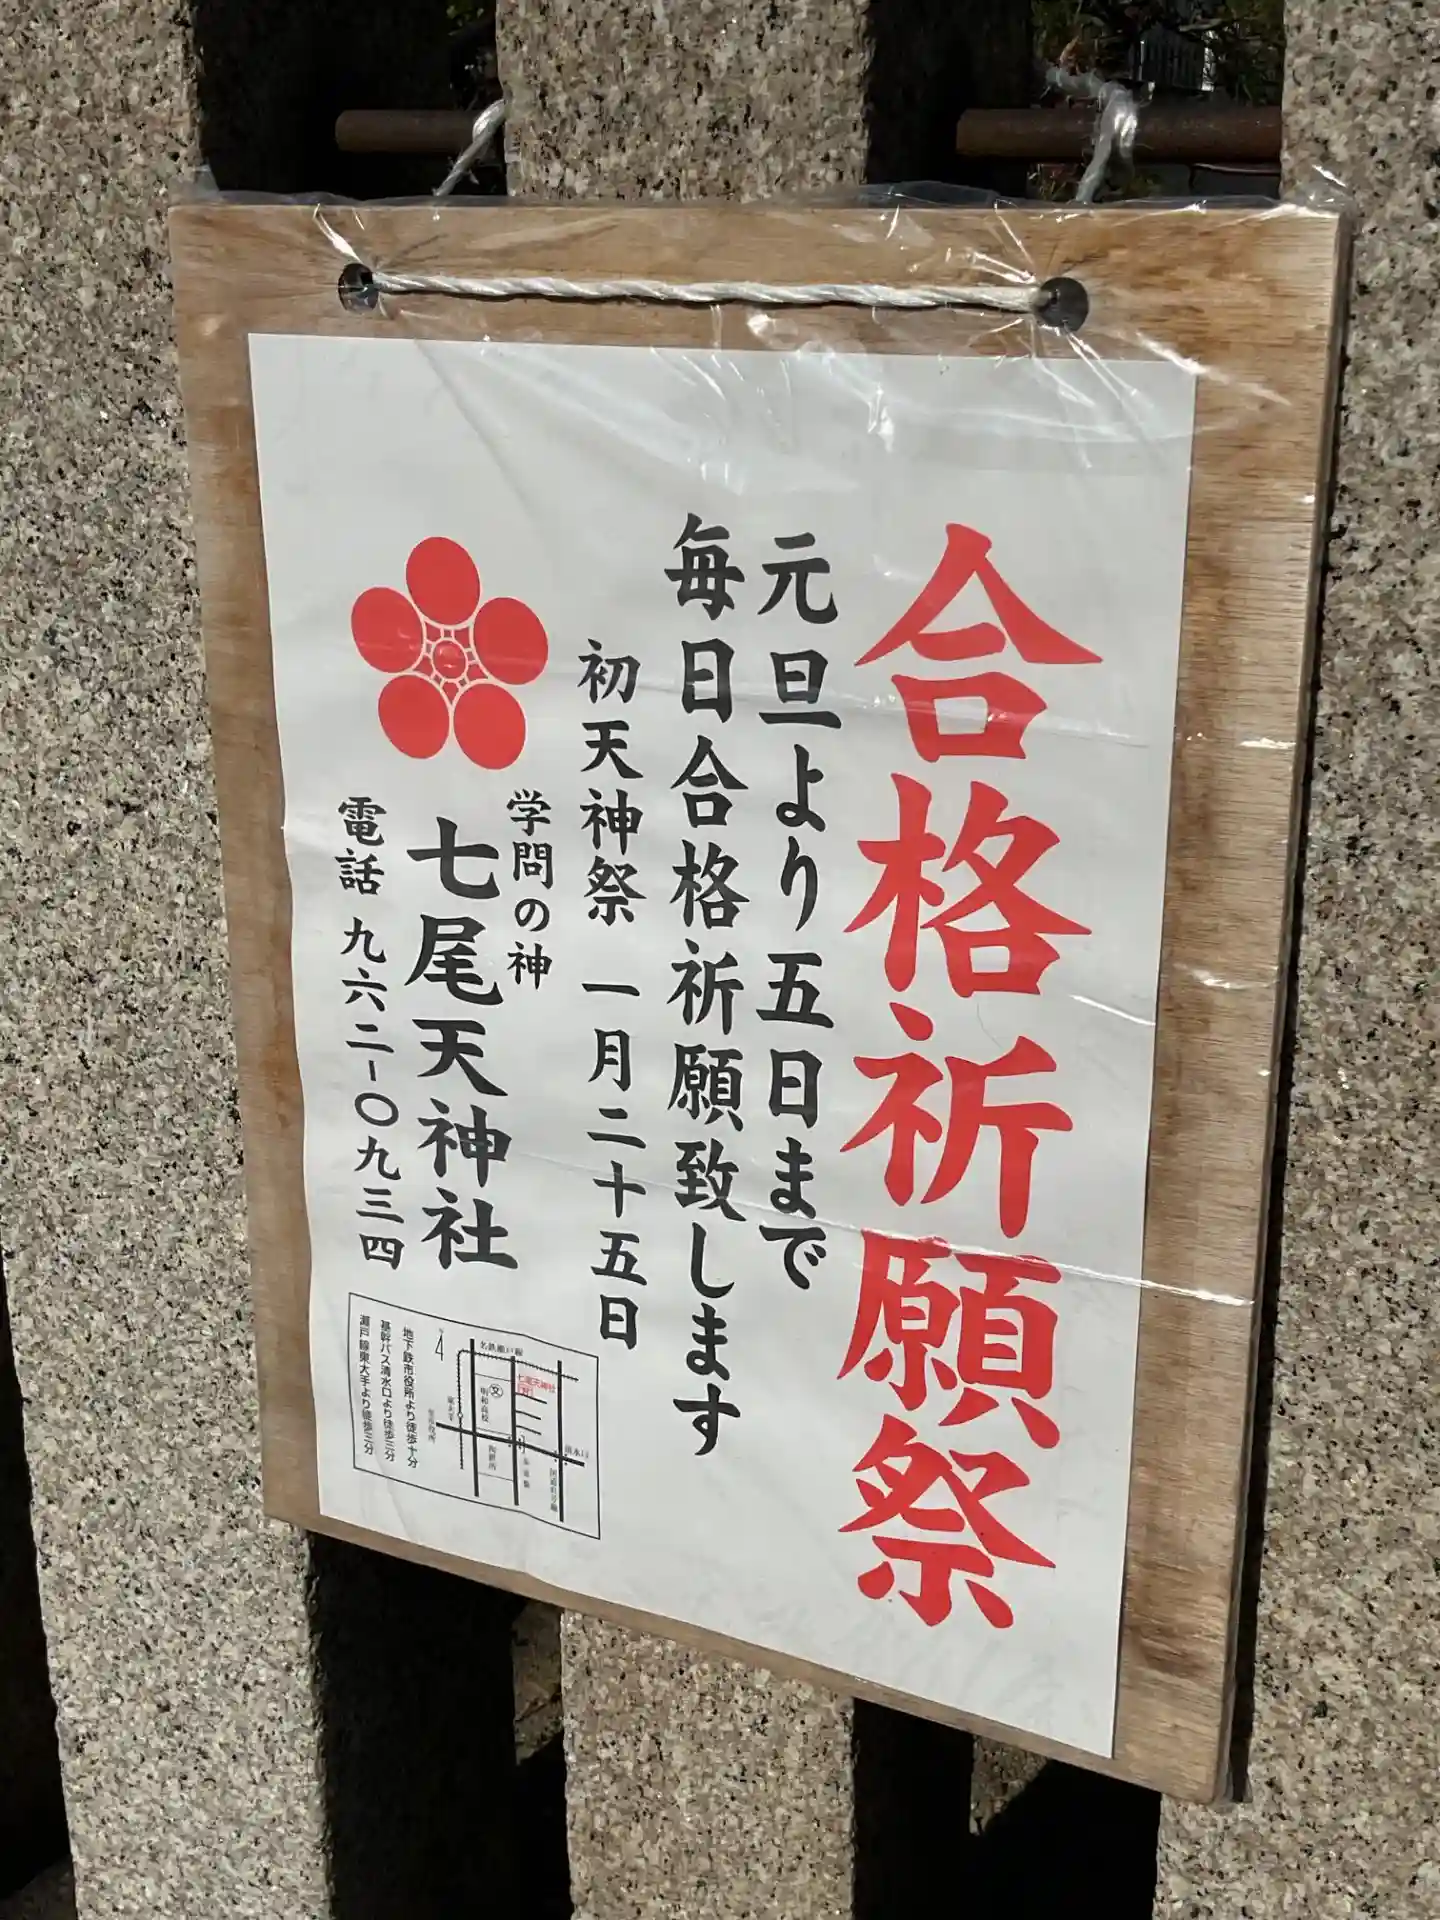 合格祈願祭
元旦より五日まで
毎日合格祈願致します
初天神祭 一月二十五日
学問の神
七尾天神社
電話 九六二-〇九三四
名鉄瀬戸線
七尾天神社
文
明和高校
東大手
市役所
清水口
地下鉄市役所より徒歩十分
基幹バス清水口より徒歩三分
瀬戸線東大手より徒歩三分